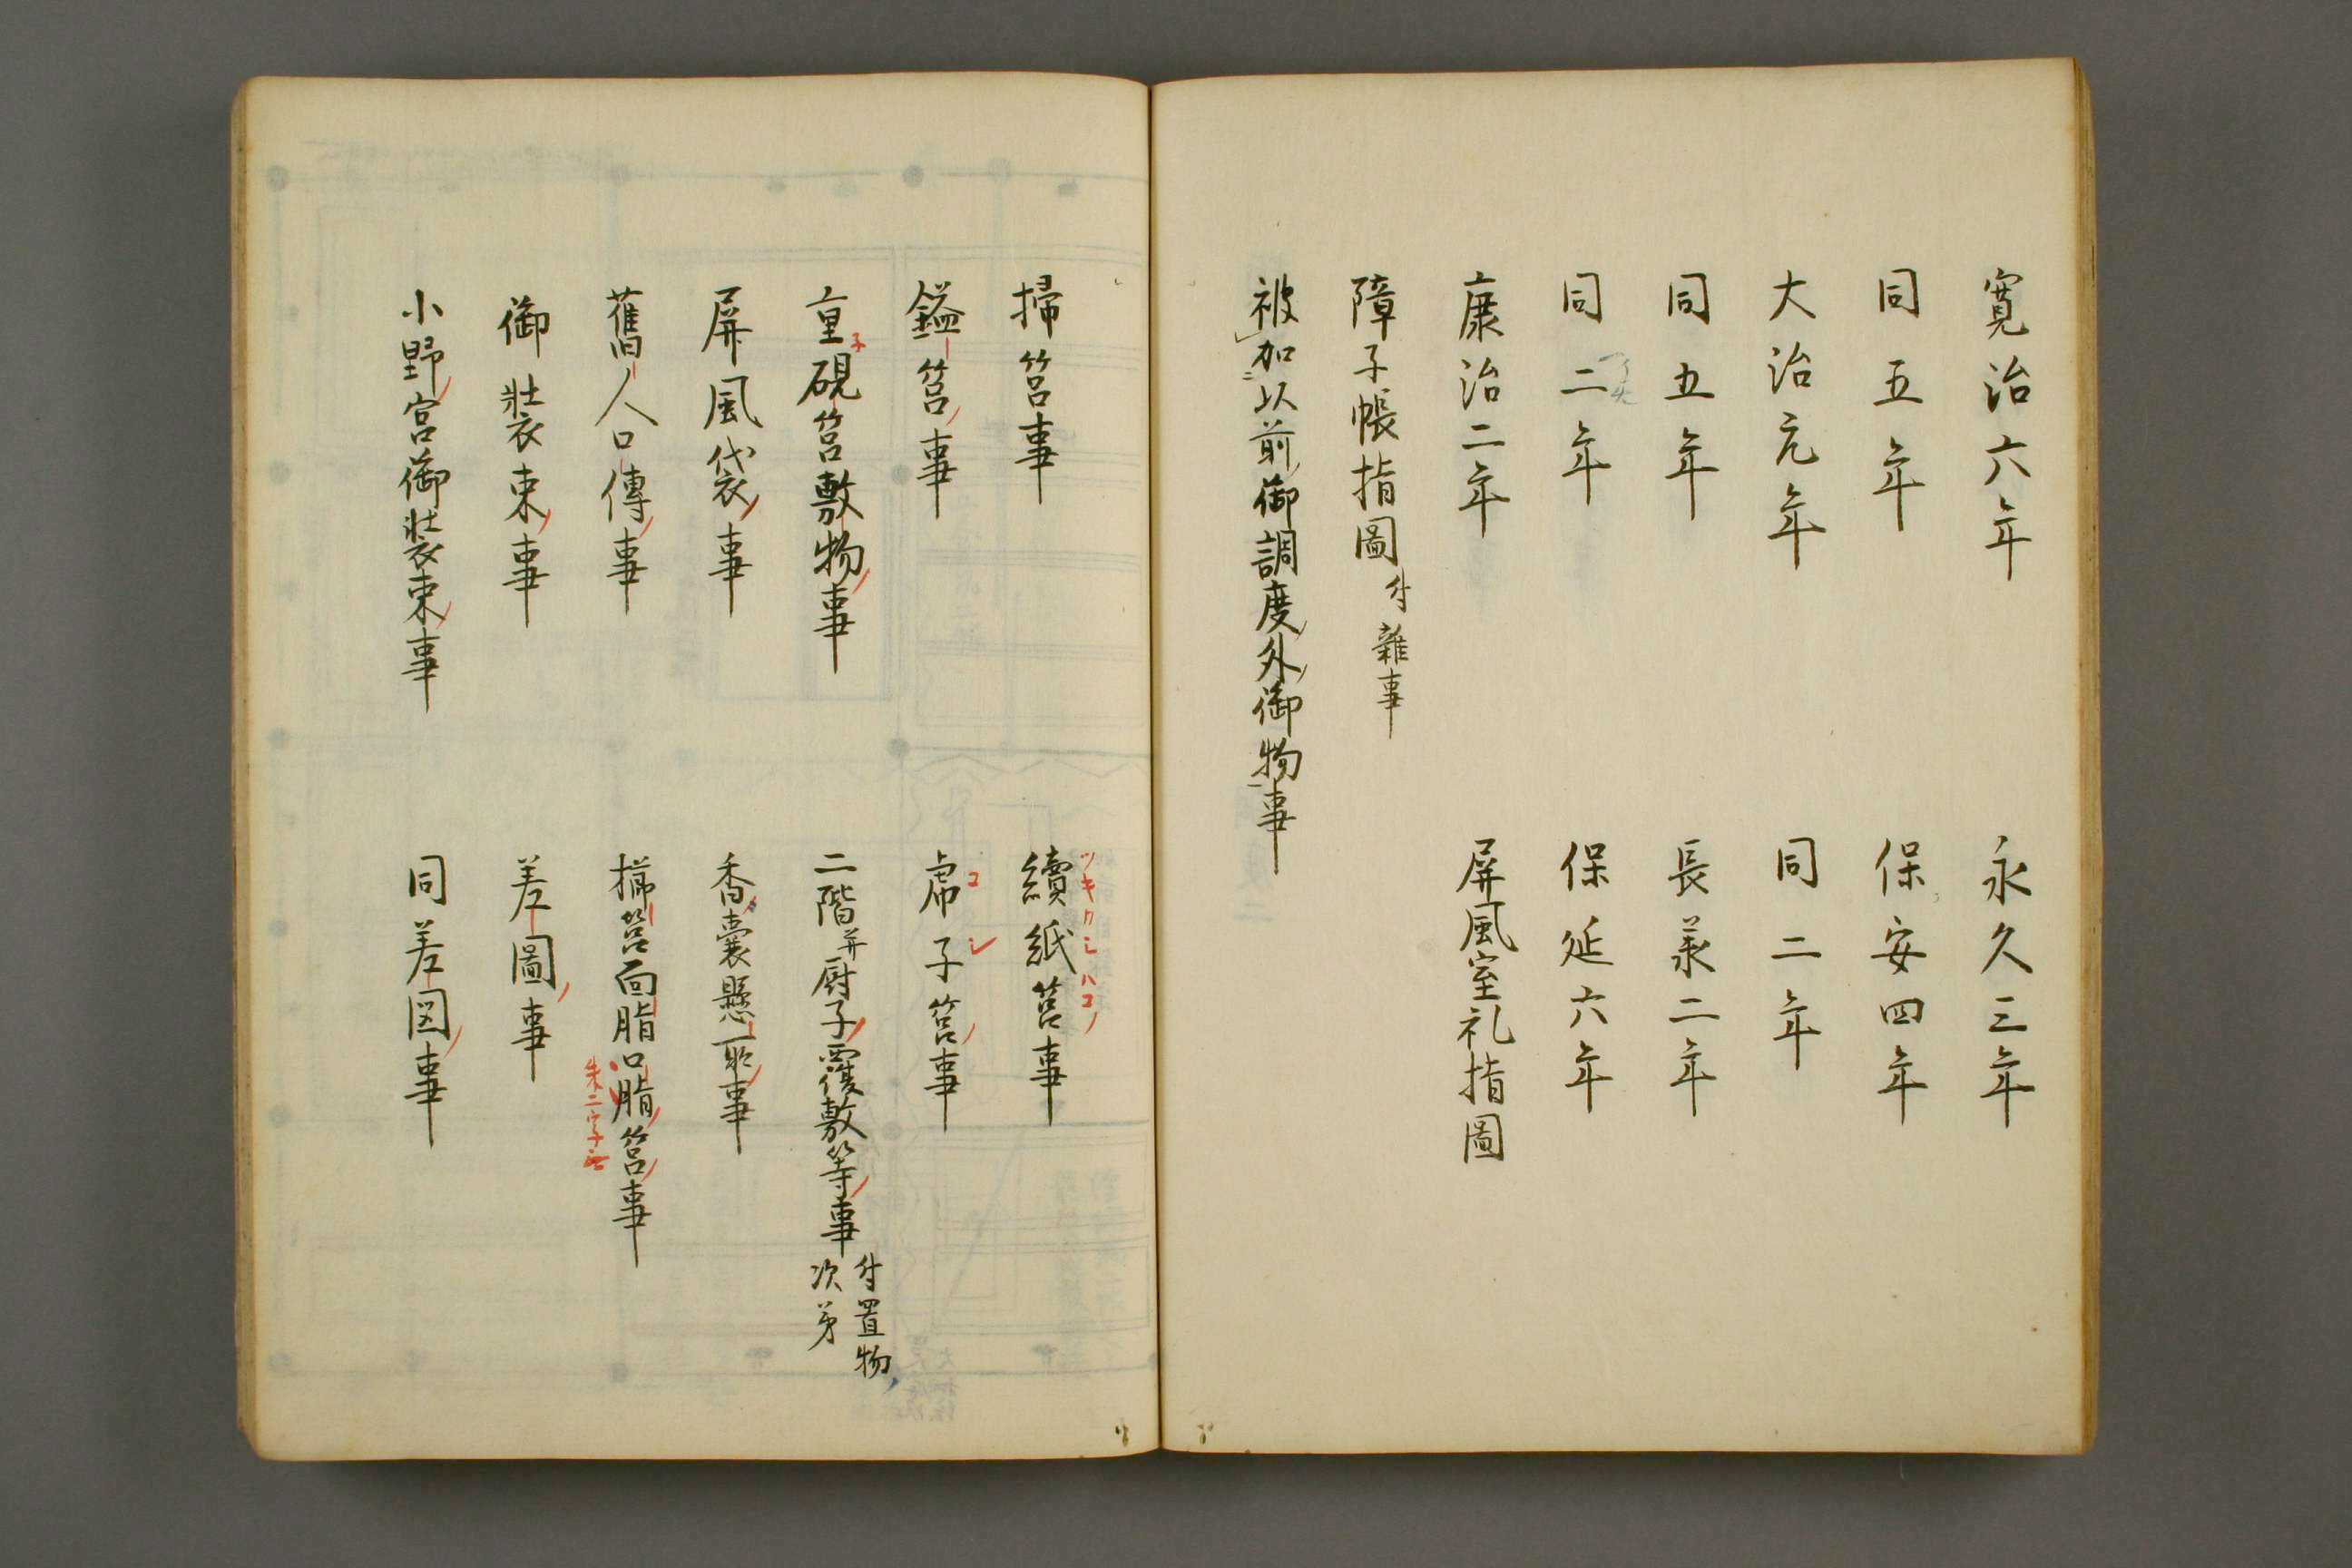 寛治六年
永久三年
同五年
保安四年
大治元年
同二年
同五年
長承二年
同二年
保延六年
康治二年
屏風室礼指圖
障子帳指圖 付雑事
被加以前御調度外御物事
掃筥事
續紙筥事
ツキカミハコ
鎰筥事
虎子筥事
コシ
重硯筥敷物事
子
二階并厨子覆敷等事 付置物
次第
屏風袋事
香嚢懸所事
舊人口傳事
櫛筥面脂口脂筥事
朱二字
御裝束事
差圖事
小野宮御裝束事
同差図事